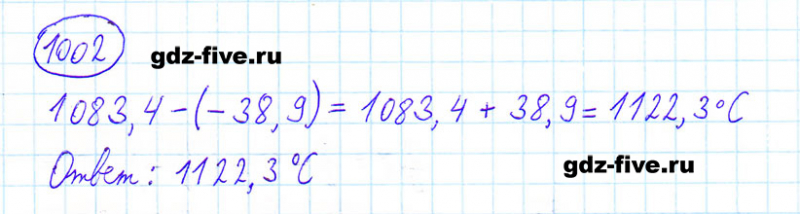 1002
gdz-five.ru
1083,4 - (-38,9) = 1083,4 + 38,9 = 1122,3°C
Ответ: 1122,3°C
gdz-five.ru